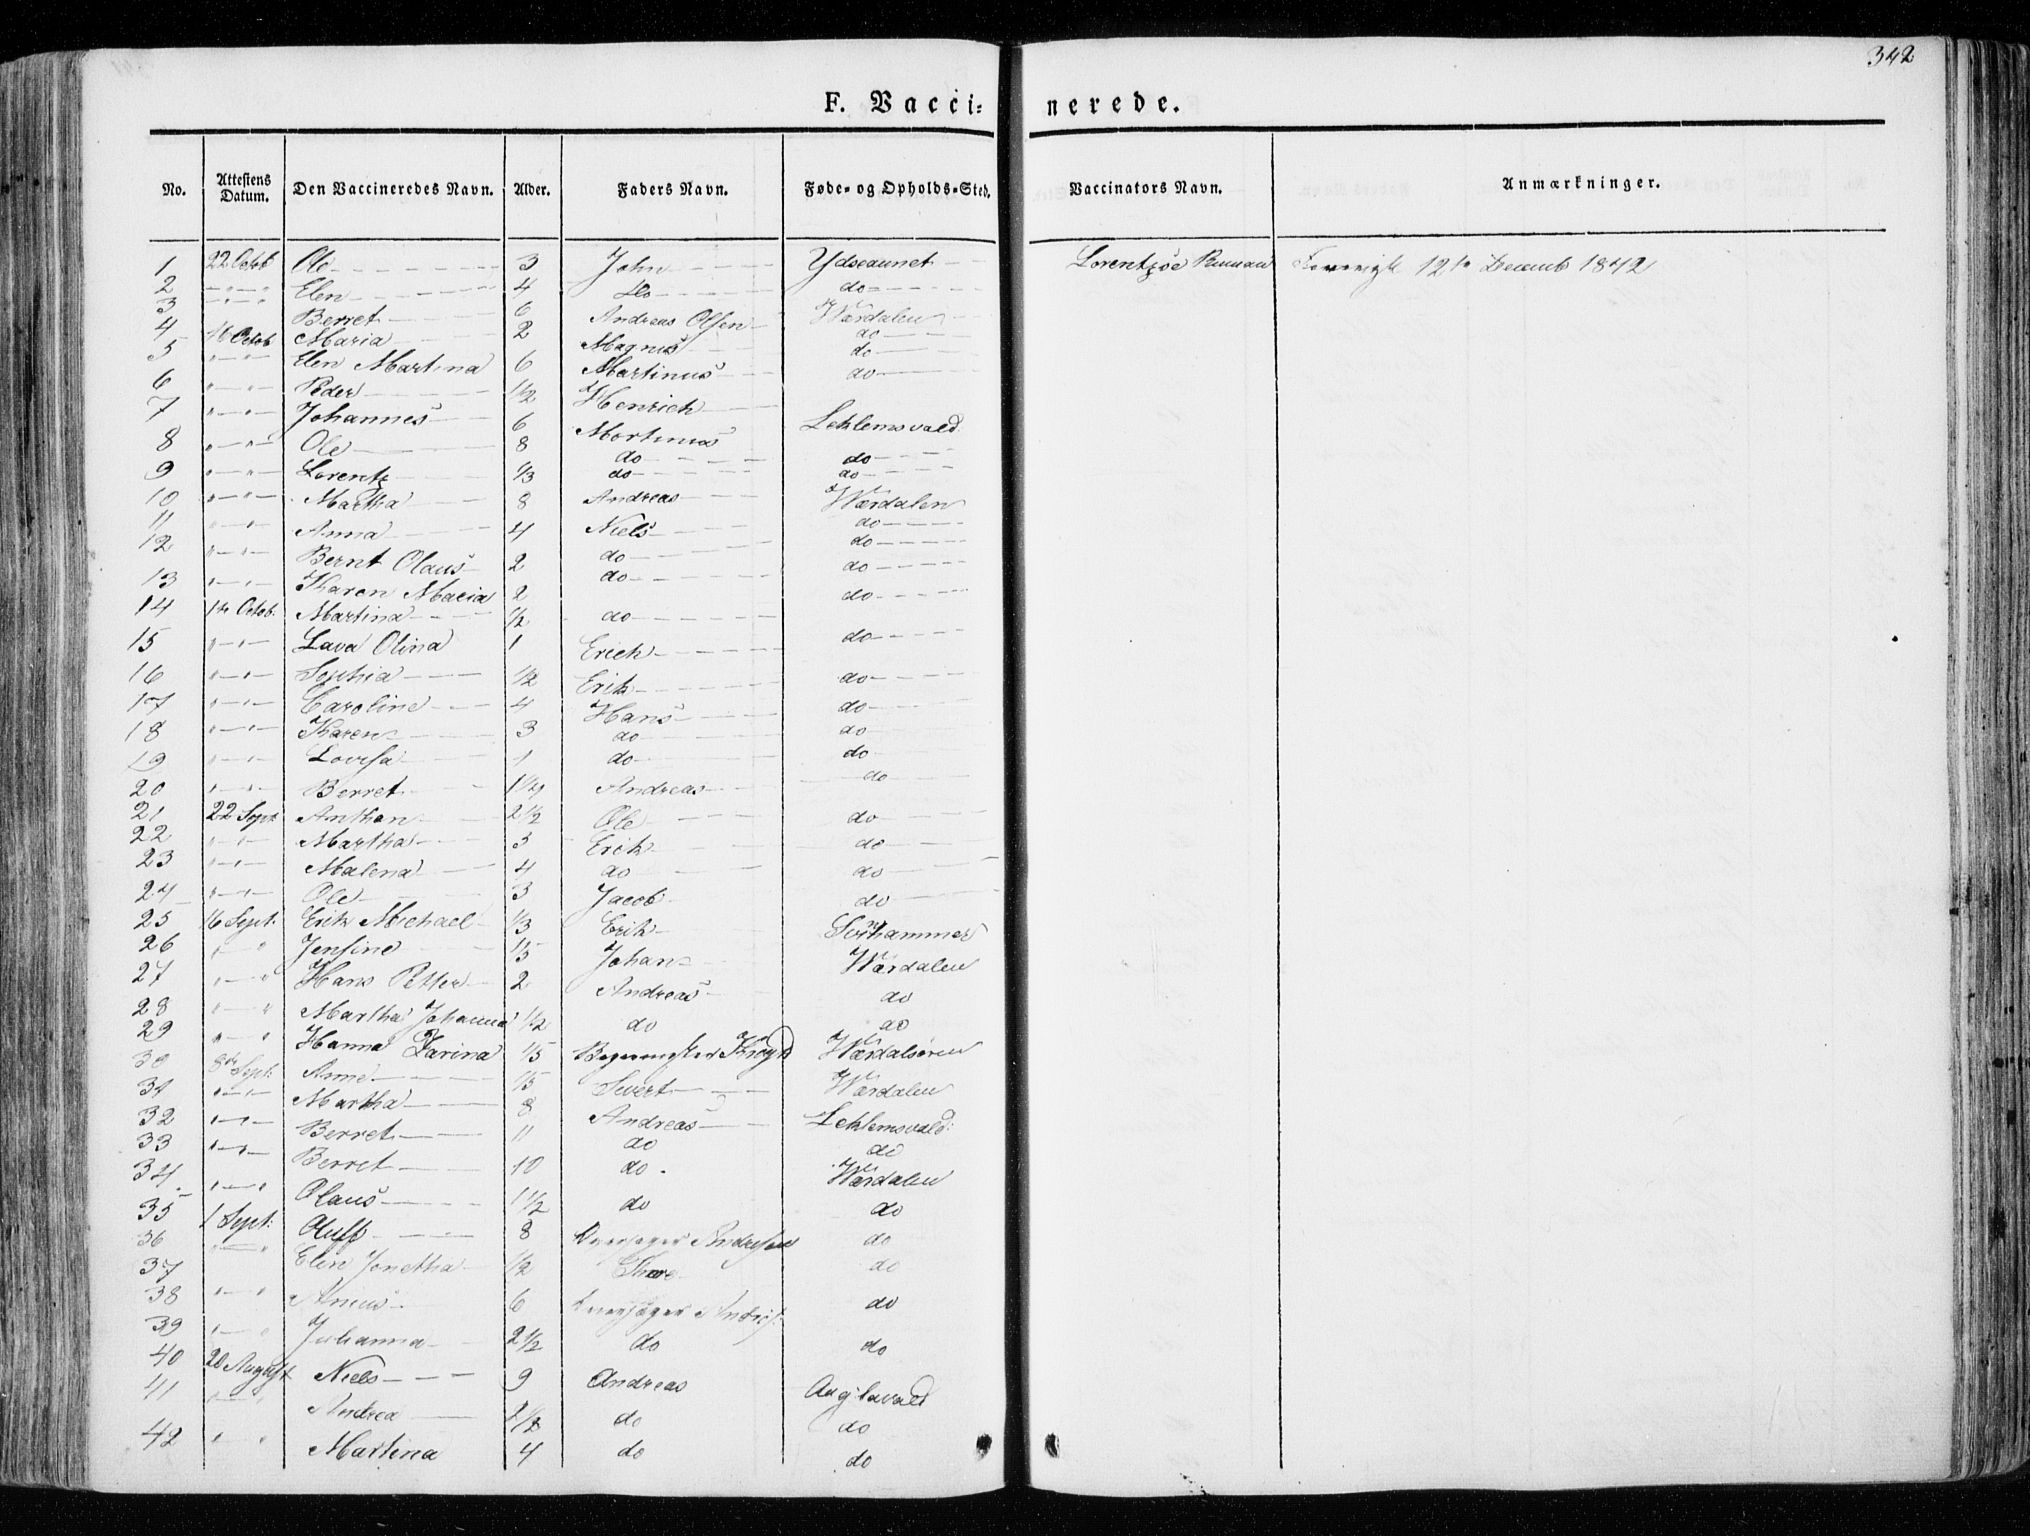 342
F. Vacci=nerede.
No. Attestens Datum. Den Vaccineredes Navn. Alder. Faders Navn. Føde- og Opholds-Sted. Vaccinators Navn. Anmærkninger.
1 22 Octob Ole 3 John Ydseaunet Lorentz 12te Decemb 1842
2 " " Elen 4 Do do
3 " " Berret 6 Andreas Olsen Wærdalen
4 16 Octob Maria 2 Magnus do
5 " " Elen Martina 6 Martinus do
6 " " Peder 1/2 Henrich do
7 " " Johannes 6 Mortinus Lehlemsvald
8 " " Ole 8 do do
9 " " Lorentz 1/3 do do
10 " " Martha 8 Andreas Wærdalen
11 " " Anna 4 Niels do
12 " " Bernt Olaus 2 do do
13 " " Karen Maria 2 do do
14 1te Octob: Martina 1/2 do do
15 " " Lava Olina 1 Erich do
16 " " Sophia 1/2 Erik do
17 " " Caroline 4 Hans do
18 " " Karen 3 do do
19 " " Lovisa 1 do do
20 " " Berret 1 1/4 Andreas do
21 22 Sept Anthon 2 1/2 Ole do
22 " " Martha 3 Erik do
23 " " Malena 4 do do
24 " " Ole 3 Jacob do
25 16 Sept: Erik Michael 1/3 Erik
26 " " Jensine 1/5 Johan Wærdalen
27 " " Hans Petter 2 Andreas do
28 " " Martha Johanna 1/2 do do
29 " " Hanna Zarina 1/5 Wærdalsøren
30 8de Sept: Anne 1/5 Sivert Wærdalen
31 " " Martha 8 Andreas Lehlemsvald:
32 " " Berret 11 do do
33 " " Berret 10 do Wærdalen
34 " " Olaus 1 1/2 do do
35 1 Sept: Oluff 8 do
36 " " Elen Jonetha 1/2 do
37
38 " " 6 do
39 " " Johanna 2 1/2 do do
40 20 August Niels 9 Andreas
41 " " Andrea 2 1/2 do do
42 " " Martina 4 do do